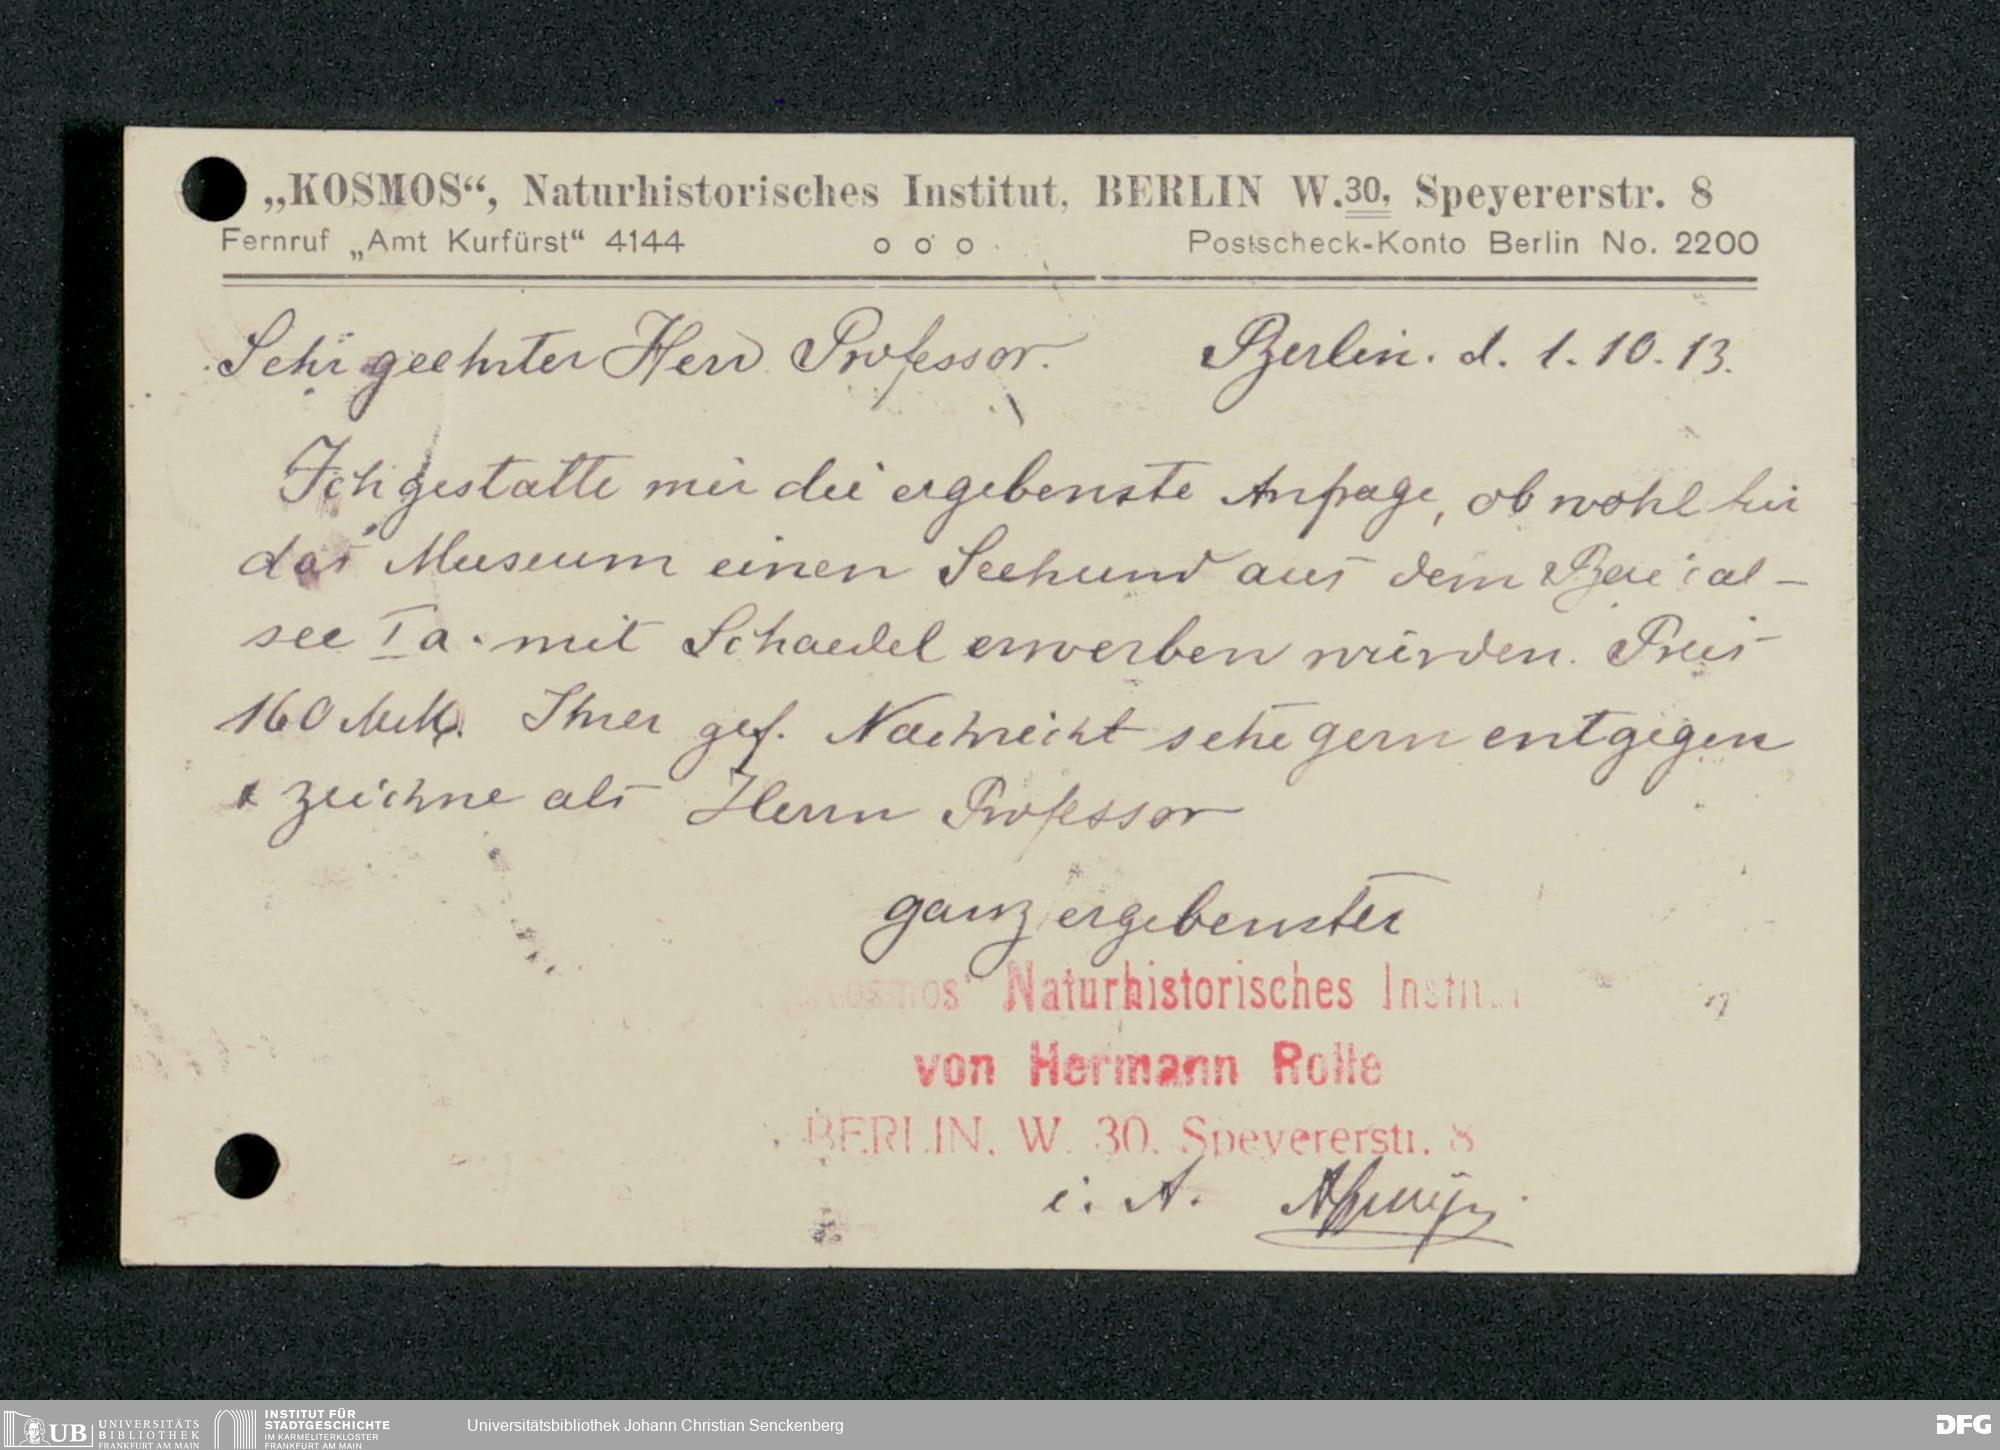 „KOSMOS“, Naturhistorisches Institut, BERLIN W.30, Speyererstr. 8
Fernruf „Amt Kurfürst“ 4144 o o o Postscheck-Konto Berlin No. 2200
Sehr geehrter Herr Professor. Berlin. d. 1. 10. 13.
Ich gestatte mir die ergebenste Anfrage, ob wohl für
das Museum einen Seehund aus dem Baical-
see Ia. mit Schaedel erwerben würden. Preis
160 Mk. Ihrer gef. Nachricht sehe gern entgegen
& zeichne als Herrn Professor
ganz ergebenster
„Kosmos“ Naturhistorisches Institut
von Hermann Rolle
BERLIN. W. 30. Speyererstr. 8
i. A.
UB UNIVERSITÄTS
BIBLIOTHEK
FRANKFURT AM MAIN
INSTITUT FÜR
STADTGESCHICHTE
IM KARMELITERKLOSTER
FRANKFURT AM MAIN
Universitätsbibliothek Johann Christian Senckenberg
DFG